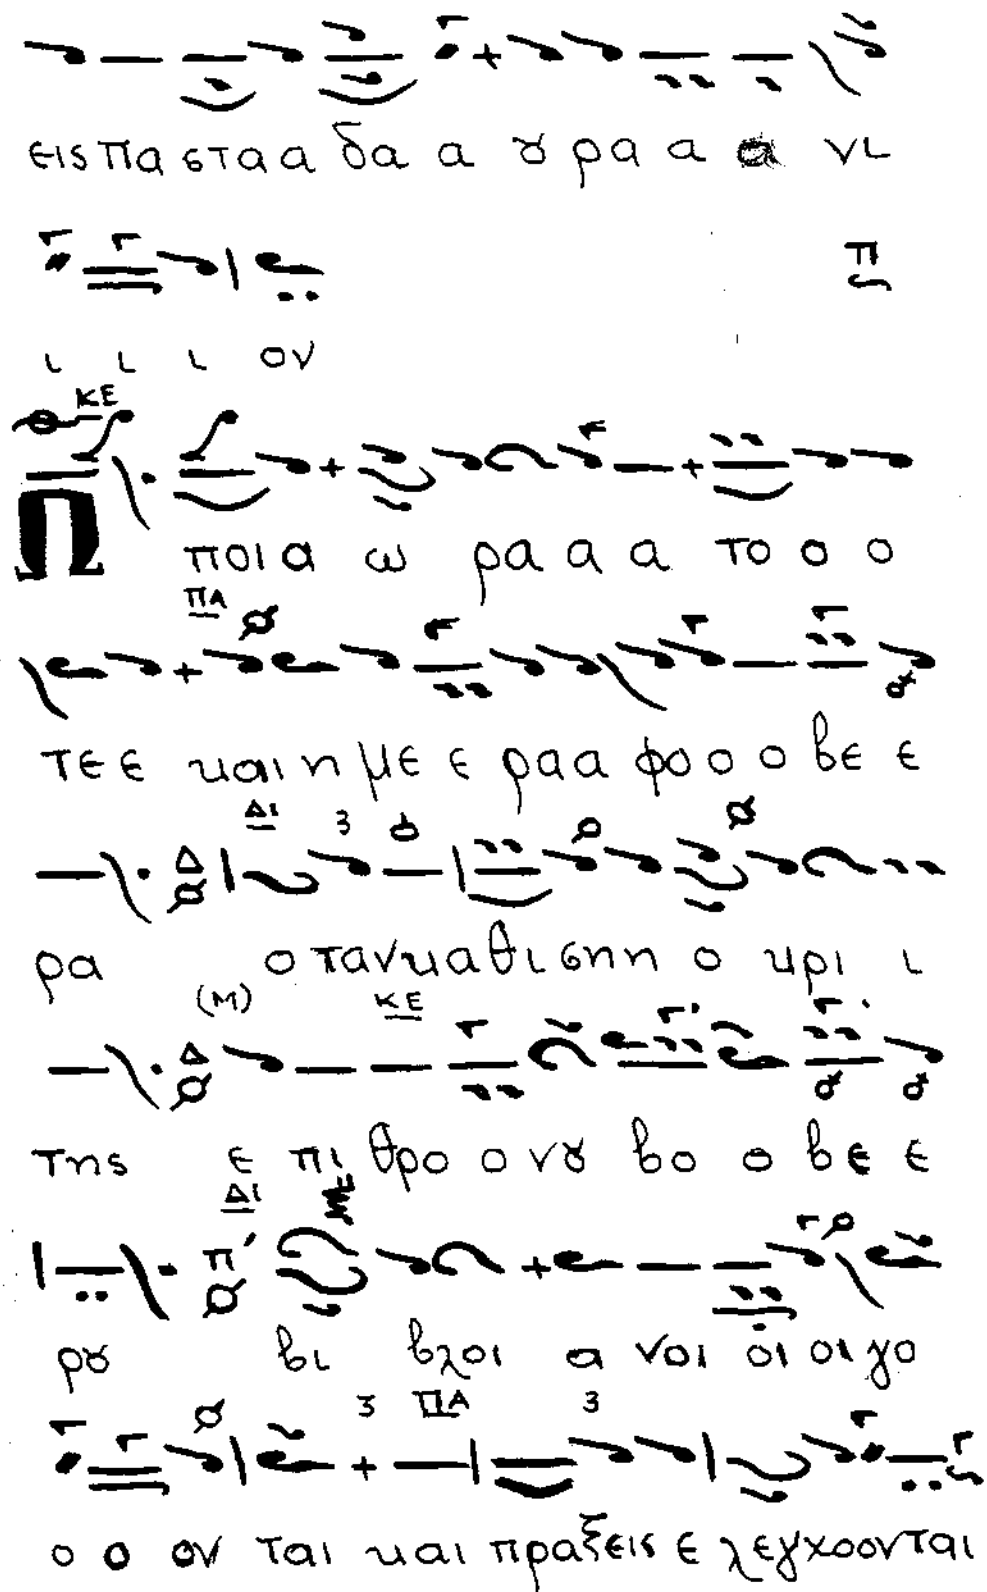 εις πα στα α δα α ȣ ρα α α νι
π
ι ι ι ον
ΚΕ
Π ποι α ω ρα α α το ο ο
ΠΑ
τε ε και η με ε ρα α φο ο ο βε ε
Δι
ρα ο ταν κα θι ση η ο κρι ι
(Μ) ΚΕ
της ε πι θρο ο νȣ βο ο βε ε
Δι
ρȣ βι βλοι α νοι οι οι γο
ΠΑ
ο ο ον ται και πραξεις ε λεγχοονται